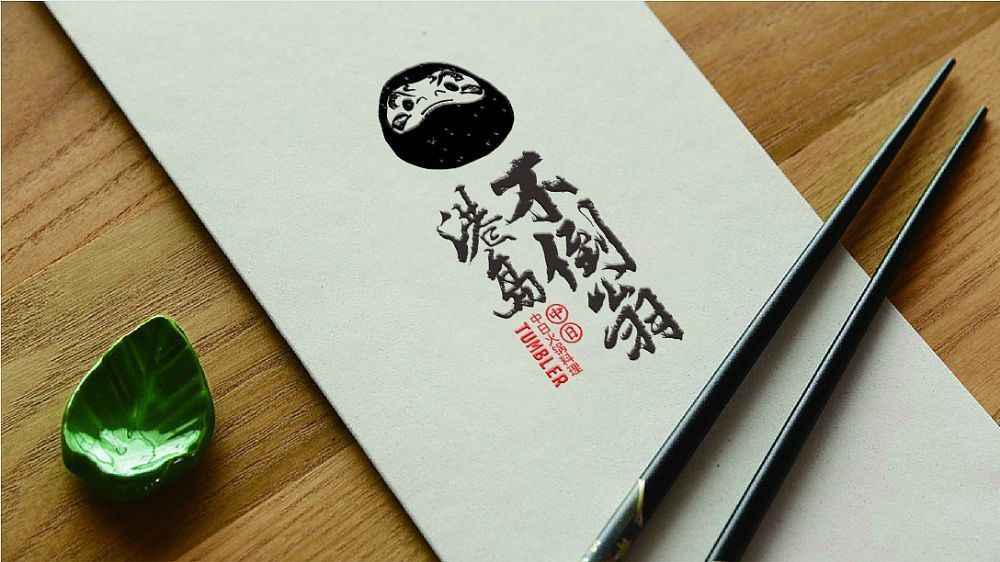 不倒翁
中日
中日火鍋料理
TUMBLER